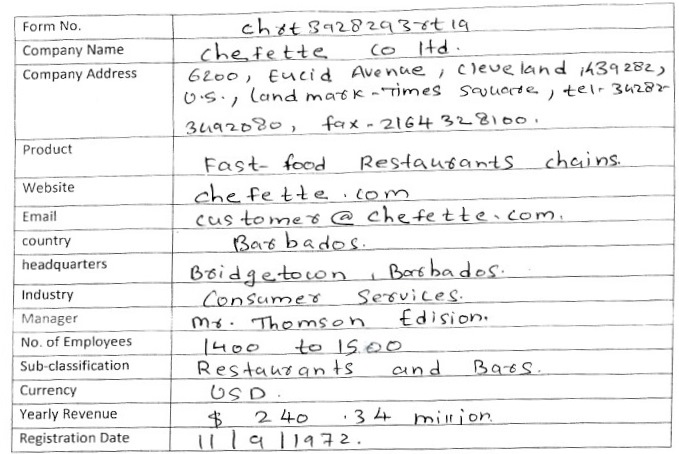 Form No. chrt3928293rt19
Company Name chefette co ltd.
Company Address 6200, Eucid Avenue, cleveland, 1439282,
U.S., land mark-Times Square, tel- 34282-
34192080, fax-2164328100.
Product Fast-food Restaurants chains.
Website chefette.com
Email customer@chefette.com.
country Barbados.
headquarters Bridgetown, Barbados.
Industry Consumer Services.
Manager Mr. Thomson Edision.
No. of Employees 1400 to 1500
Sub-classification Restaurants and Bars.
Currency USD.
Yearly Revenue $ 240.34 million
Registration Date 11/9/1972.